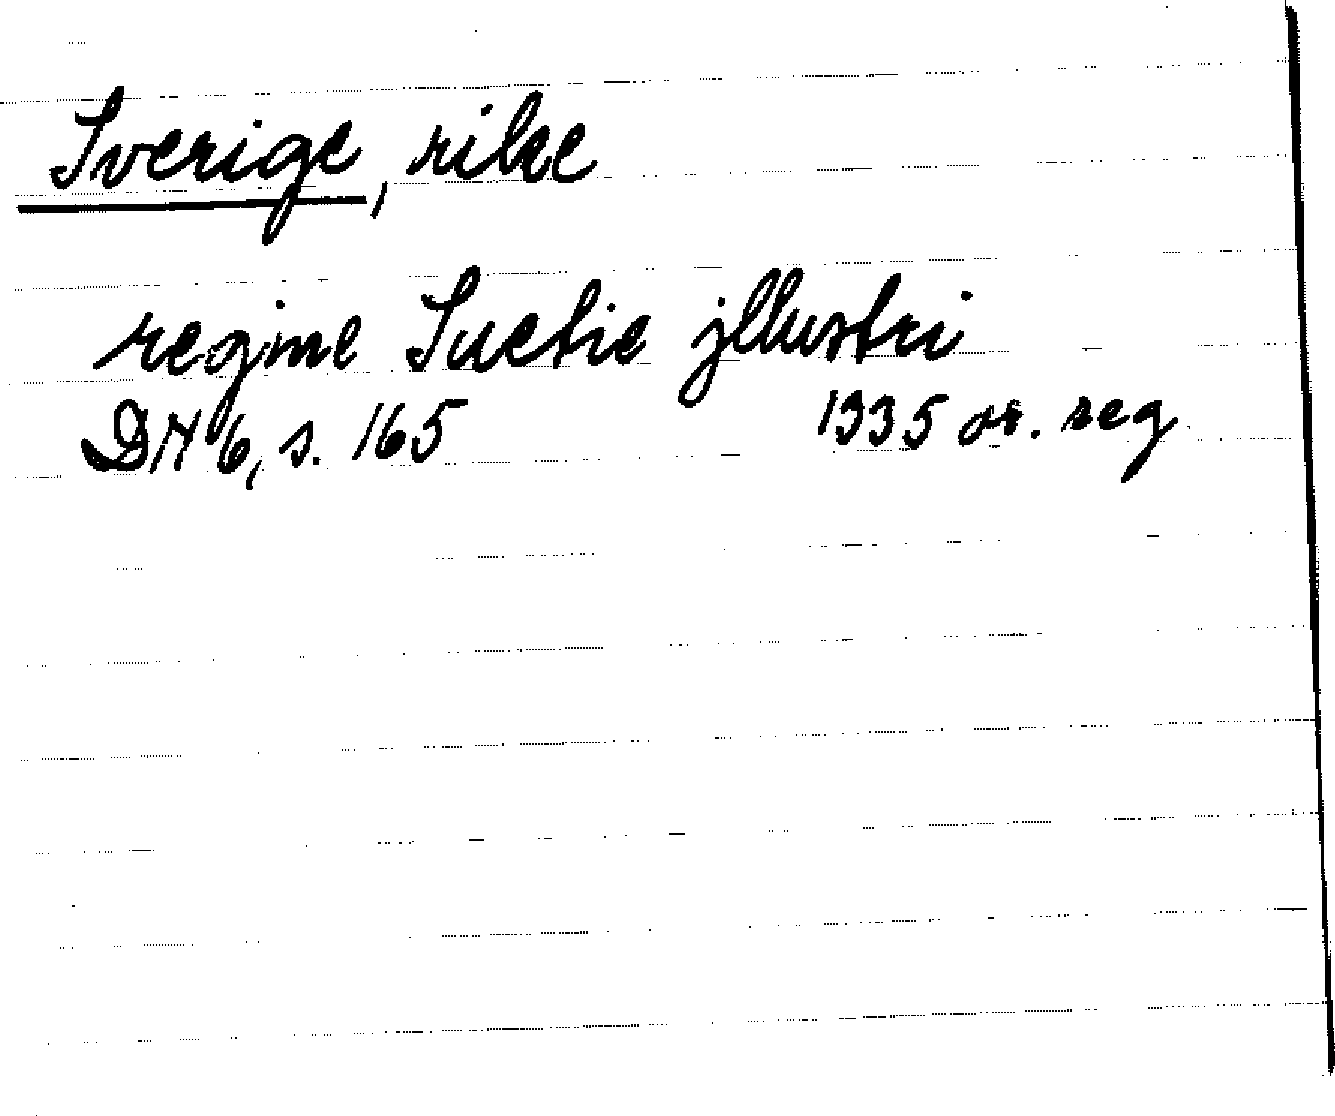 Sverige, rike
regine Suetie jllustri
DN 6, s. 165 1335 or. reg.